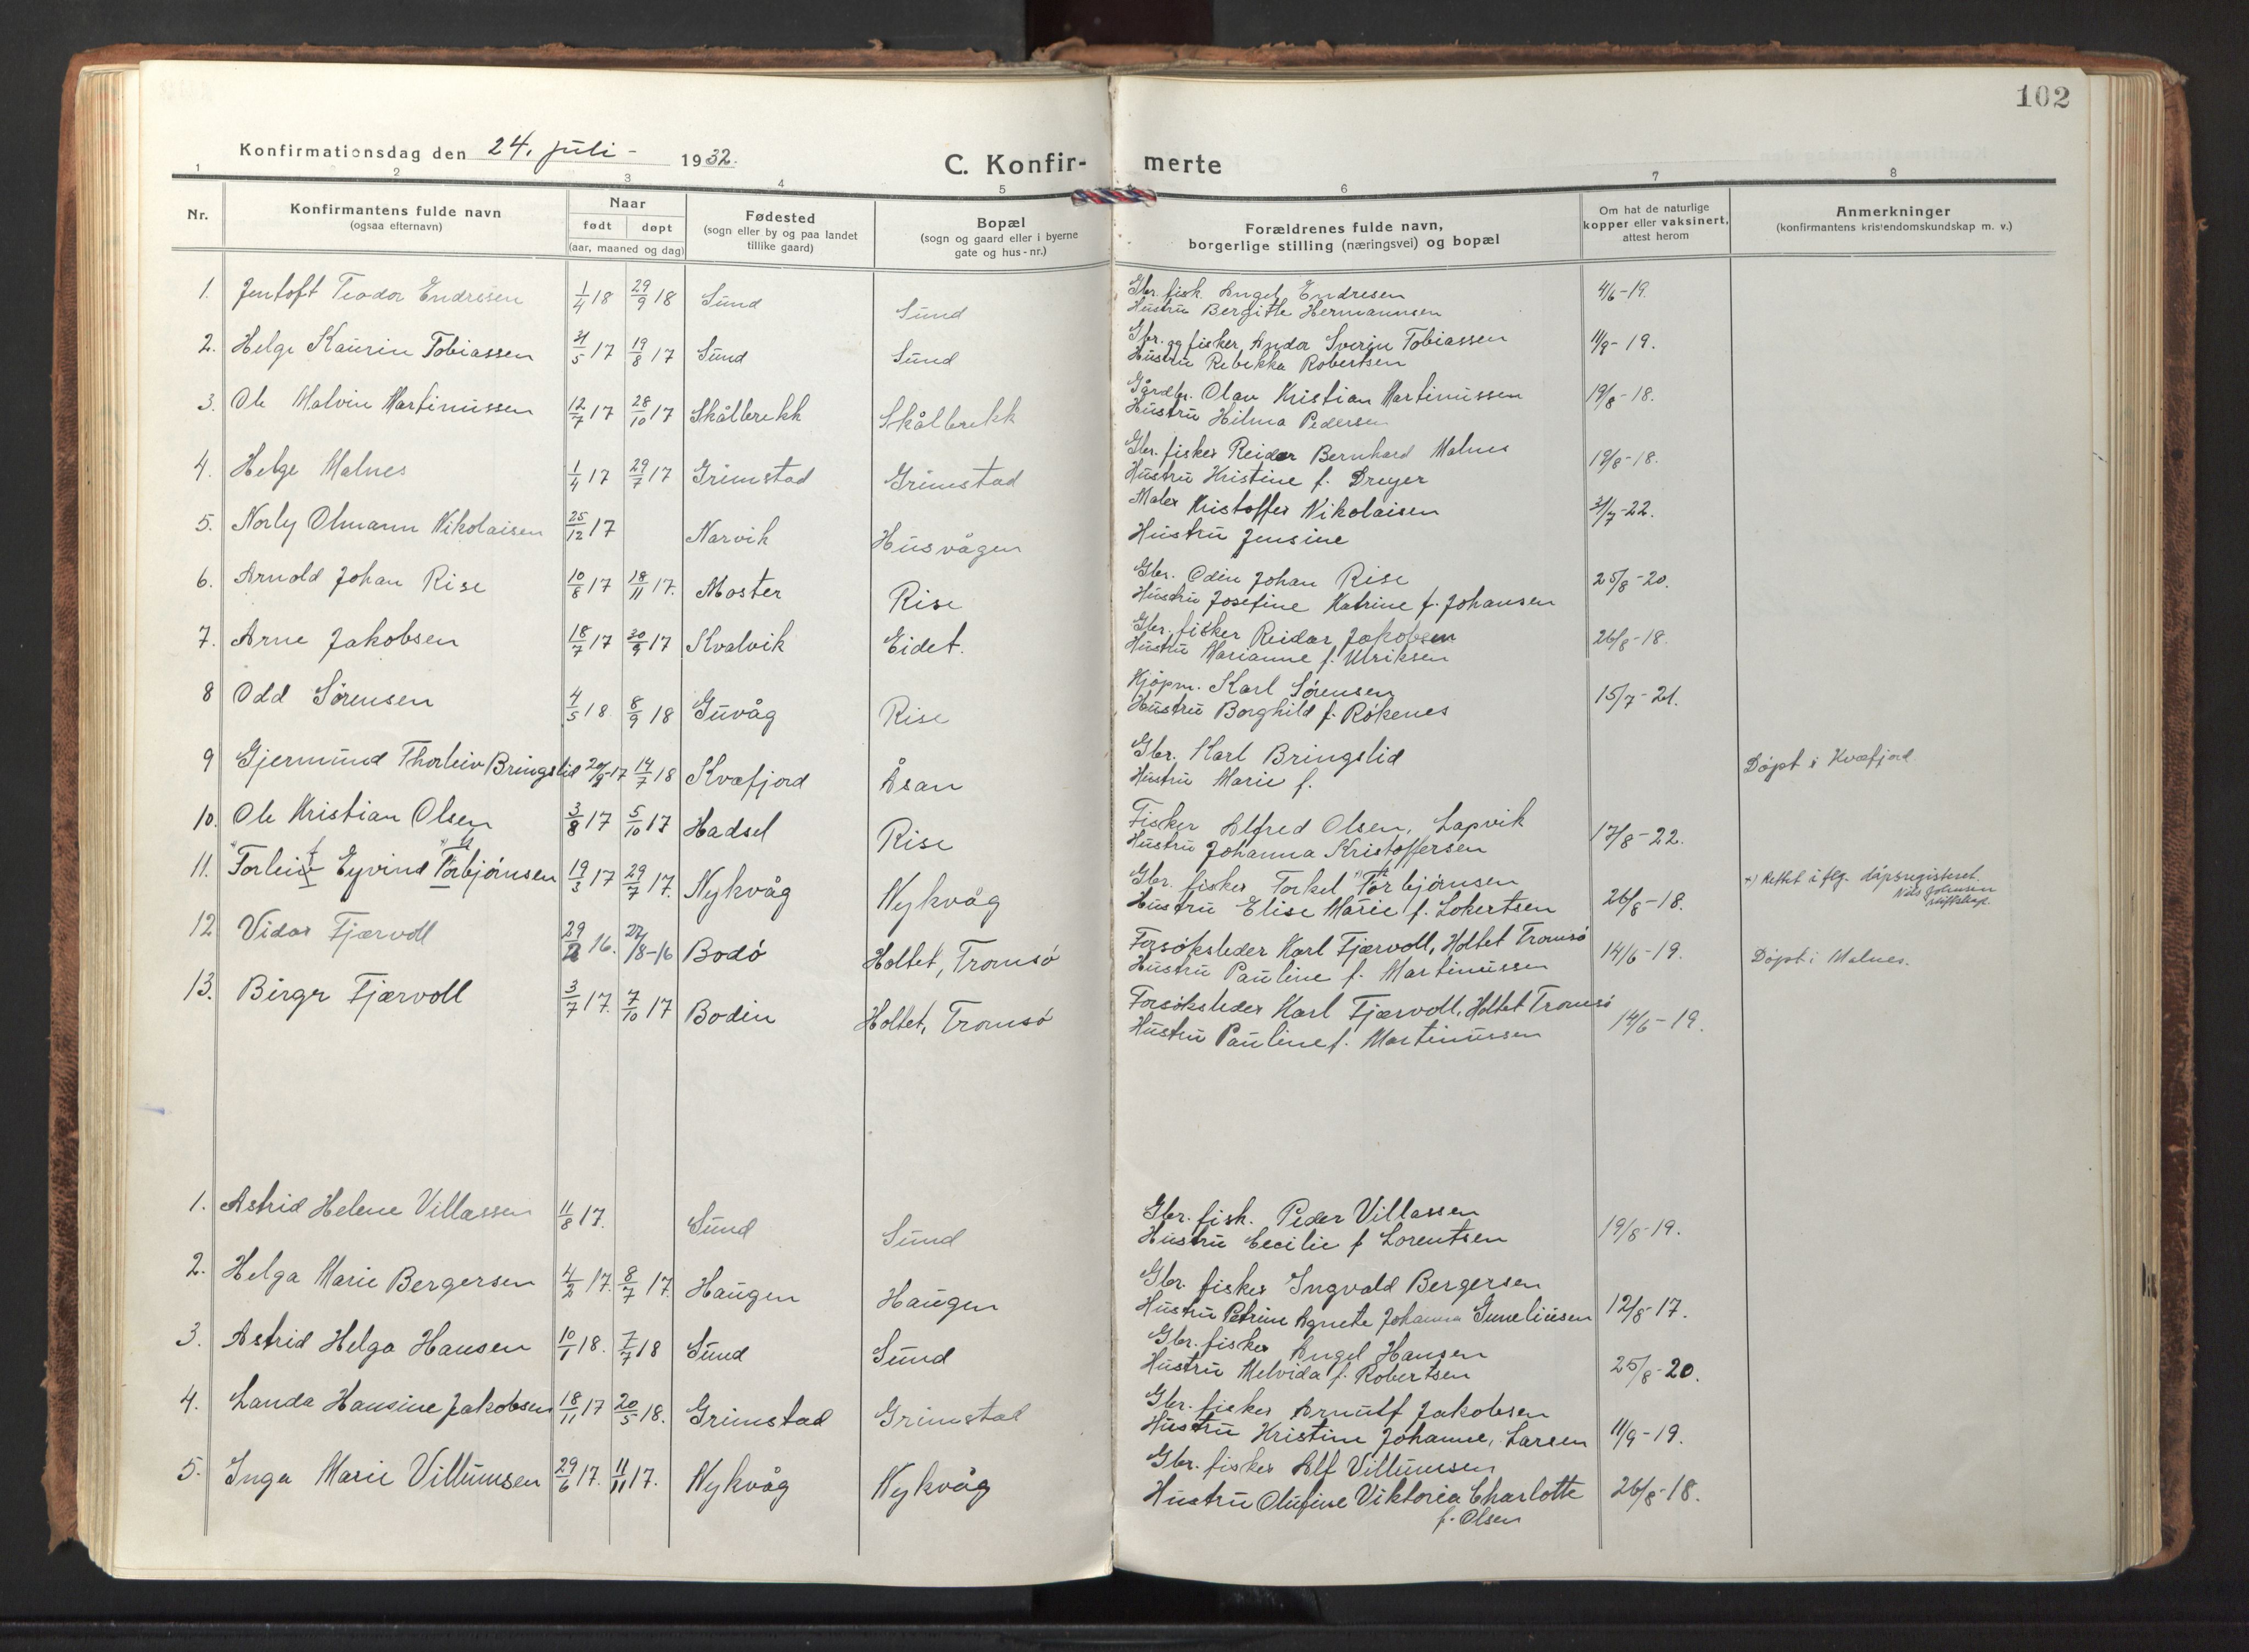 102
Konfirmationsdag den 24. juli - 1932.
C. Konfirmerte
1 2 3 4 5 6 7 8
Nr.
Konfirmantens fulde navn
(ogsaa efternavn)
Naar
født døpt
(aar, maaned og dag)
Fødested
(sogn eller by og paa landet
tillike gaard)
Bopæl
(sogn og gaard eller i byerne
gate og hus-nr.)
Forældrenes fulde navn,
borgerlige stilling (næringsvei) og bopæl
Om hat de naturlige
kopper eller vaksinert,
attest herom
Anmerkninger
(konfirmantens kristendomskundskap m. v.)
1. Jentoft Teodor Endresen 1/4 18 29/9 18 Sund Sund Gbr. fisk. Angel Endresen 4/6-19.
Hustru Bergitte Hermannsen
2. Helge Kaurin Tobiassen 31/5 17 19/8 17 Sund Sund Gbr. og fisker Andor Sverin Tobiassen 11/9-19.
Hustru Rebekka Robertsen
3. Ole Malvin Martinussen 12/7 17 28/10 17 Skålbrekk Skålbrekk Gårdbr. Olav Kristian Martinussen 19/8-18.
Hustru Hilma Pedersen
4. Helge Malnes 1/4 17 29/7 17 Grimstad Grimstad Gbr. fisker Reidar Bernhard Malnes 19/8-18.
Hustru Kristine f. Dreyer
5. Norly Olmann Nikolaisen 25/12 17 Narvik Husvågen Maler Kristoffer Nikolaisen 31/7-22.
Hustru Jensine
6. Arnold Johan Rise 10/8 17 18/11 17. Moster Rise Gbr. Odin Johan Rise 25/8-20.
Hustru Josefine Katrine f. Johansen
7. Arne Jakobsen 18/7 17 30/9 17 Kvalvik Eidet. Gbr. fisker Reidar Jakobsen 26/8-18.
Hustru Marianne f. Ulriksen
8 Odd Sørensen 4/5 18 8/9 18 Guvåg Rise Kjøpm. Karl Sørensen 15/7-21.
Hustru Borghild f. Røkenes
9 Gjermund Thorleiv Bringslid 20/9-17 14/7 18 Kvæfjord Åsan Gbr. Karl Bringslid Døpt i Kvæfjord
Hustru Marie f.
10. Ole Kristian Olsen 3/8 17 5/10 17 Hadsel Rise Fisker Alfred Olsen, Lapvik 17/8-22.
Hustru Johanna Kristoffersen
11. Torleif Eyvind Torbjørnsen 19/3 17 29/7 17. Nykvåg Nykvåg Gbr. fisker Torkel Torbjørnsen 26/8-18. x) Rettet i flg. dåpsregisteret.
Hustru Elise Marie f. Lokertsen Nils Johnsen
12 Vidar Fjærvoll 29/2 16. 27/8-16 Bodø Holtet, Tromsø Forsøksleder Karl Fjærvoll, Holtet Tromsø 14/6-19. Døpt i Malnes.
Hustru Pauline f. Martinussen
13. Birger Fjærvoll 3/7 17. 7/10 17 Bodin Holtet, Tromsø Forsøksleder Karl Fjærvoll, Holtet Tromsø 14/6-19.
Hustru Pauline f. Martinussen
1. Astrid Helene Villassen 11/8 17. Sund Sund Gbr. fisk. Peder Villassen 19/8-19.
Hustru Cecilie f Lorentsen
2. Helga Marie Bergersen 4/2 17. 8/7 17. Haugen Haugen Gbr. fisker Ingvald Bergersen 12/8-17.
Hustru Petrine Agnete Johanna
3. Astrid Helga Hansen 10/1 18. 7/7 18 Sund Sund Gbr. fisker Angel Hansen 25/8-20.
Hustru Melvida f. Robertsen
4. Landa Hansine Jakobsen 18/11 17 20/5 18. Grimstad Grimstad Gbr. fisker Arnulf Jakobsen 11/9-19.
Hustru Kristine Johanne, Larsen
5. Inga Marie Villumsen 29/6 17. 11/11 17. Nykvåg Nykvåg Gbr. fisker Alf Villumsen 26/8-18.
Hustru Olufine Viktoria Charlotte
f. Olsen